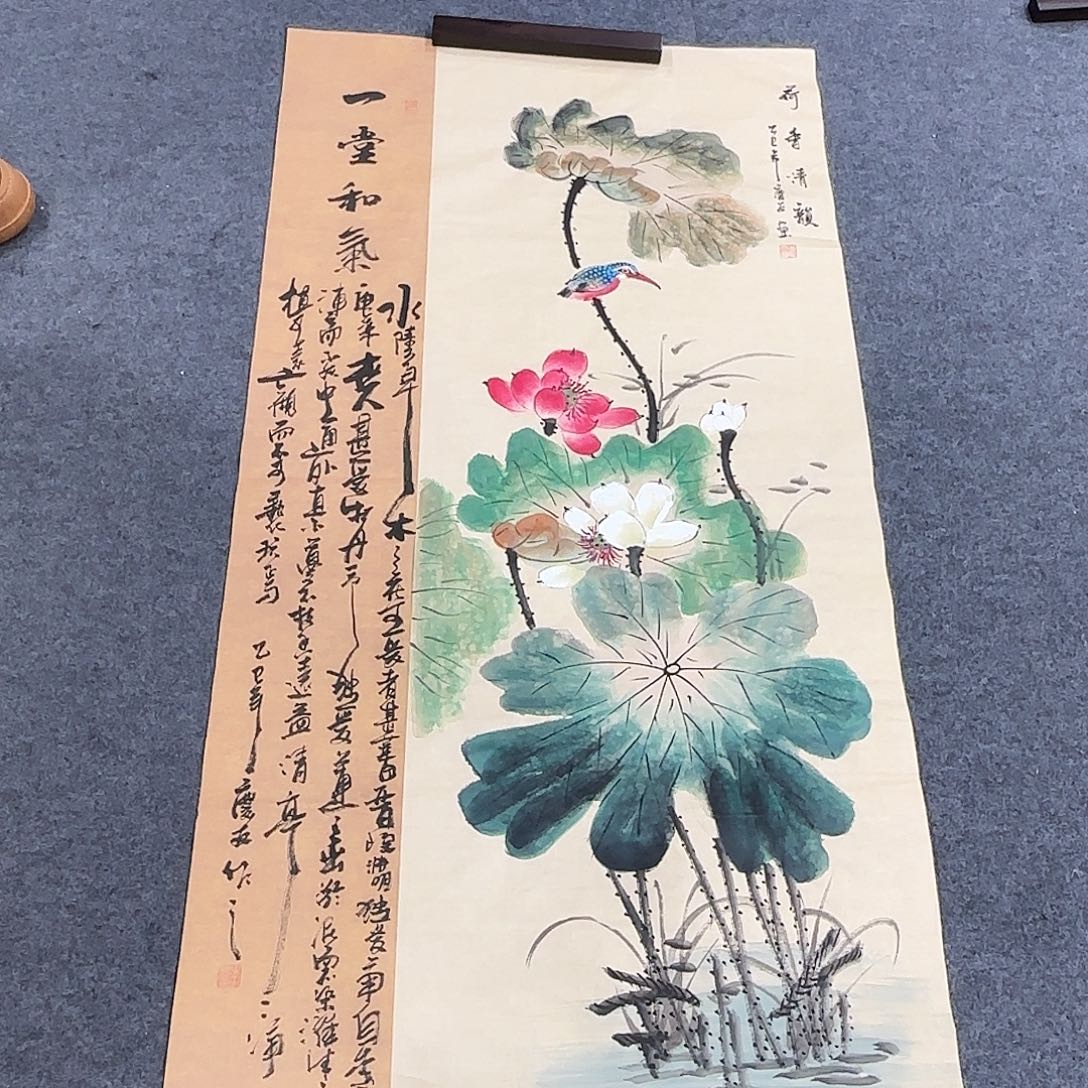 荷香清韻
乙巳年慶友畫
一堂和氣
水陸草木之花可愛者甚蕃晉陶淵明獨愛菊自李
唐來甚愛牡丹予獨愛蓮之出於泥而不染濯清
中通外直不蔓不枝香遠益清亭亭淨
植可遠觀而不可褻玩焉 乙巳年慶友作之